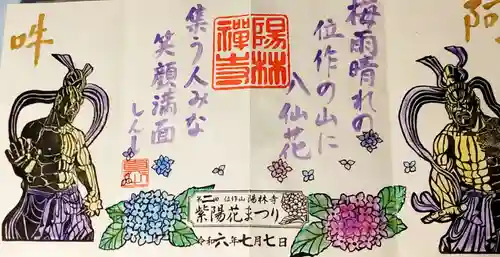 阿
梅雨晴れの
位作の山に
八仙花
陽林
禅寺
集う人みな
笑顔満面
しんしょう
吽
第二回 位作山 陽林寺
紫陽花まつり
令和六年七月七日